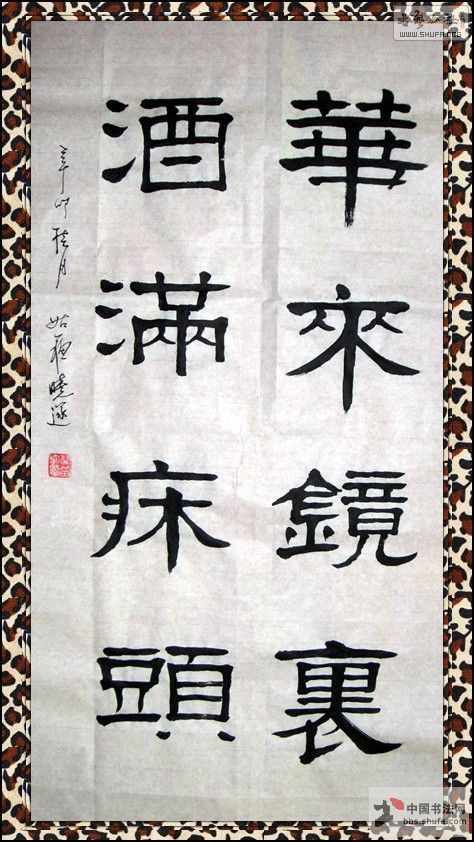 華來鏡裏
酒滿床頭
辛卯桂月
WWW.SHUFA.ORG
中国书法网
bbs.shufa.com